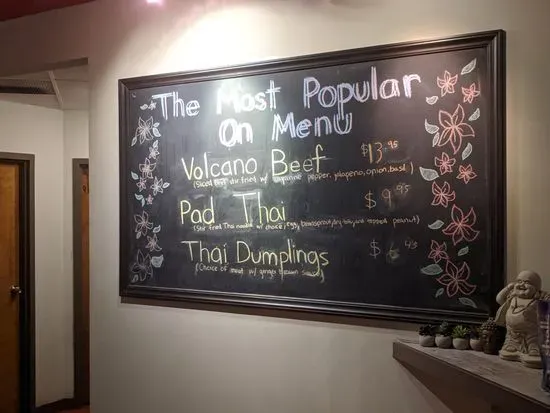 The Most Popular
On Menu
Volcano Beef $13.95
(Sliced beef stir fried w/ pepper, jalapeno, onion, basil)
Pad Thai $9.95
(Stir fried Thai noodle w/ choice, Egg, beansprout, dry tofu, and topped peanut)
Thai Dumplings $ .45
(Choice of meat w/ ginger brown sauce)